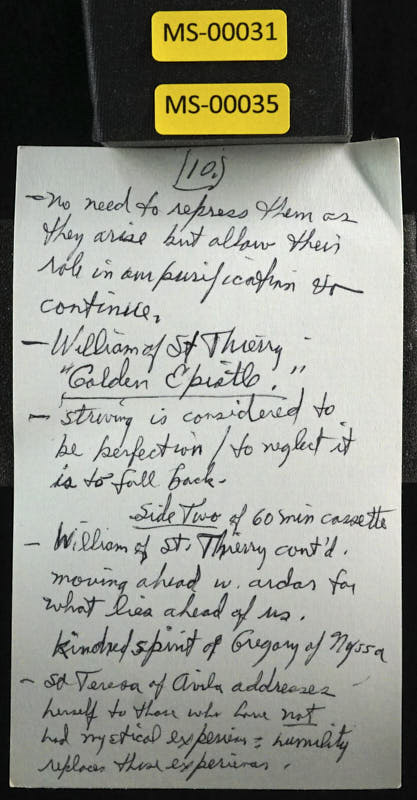 MS-00031
MS-00035
[10.]
- No need to repress them as
they arise but allow their
role in our purification to
continue.
- William of St Thierry -
"Golden Epistle."
- striving is considered to
be perfection / to neglect it
is to fall back.
Side Two of 60 min cassette
- William of St. Thierry cont'd.
moving ahead w. ardor for
what lies ahead of us.
Kindred spirit of Gregory of Nyssa
- St Teresa of Avila addresses
herself to those who have not
had mystical experiences = humility
replaces these experiences.